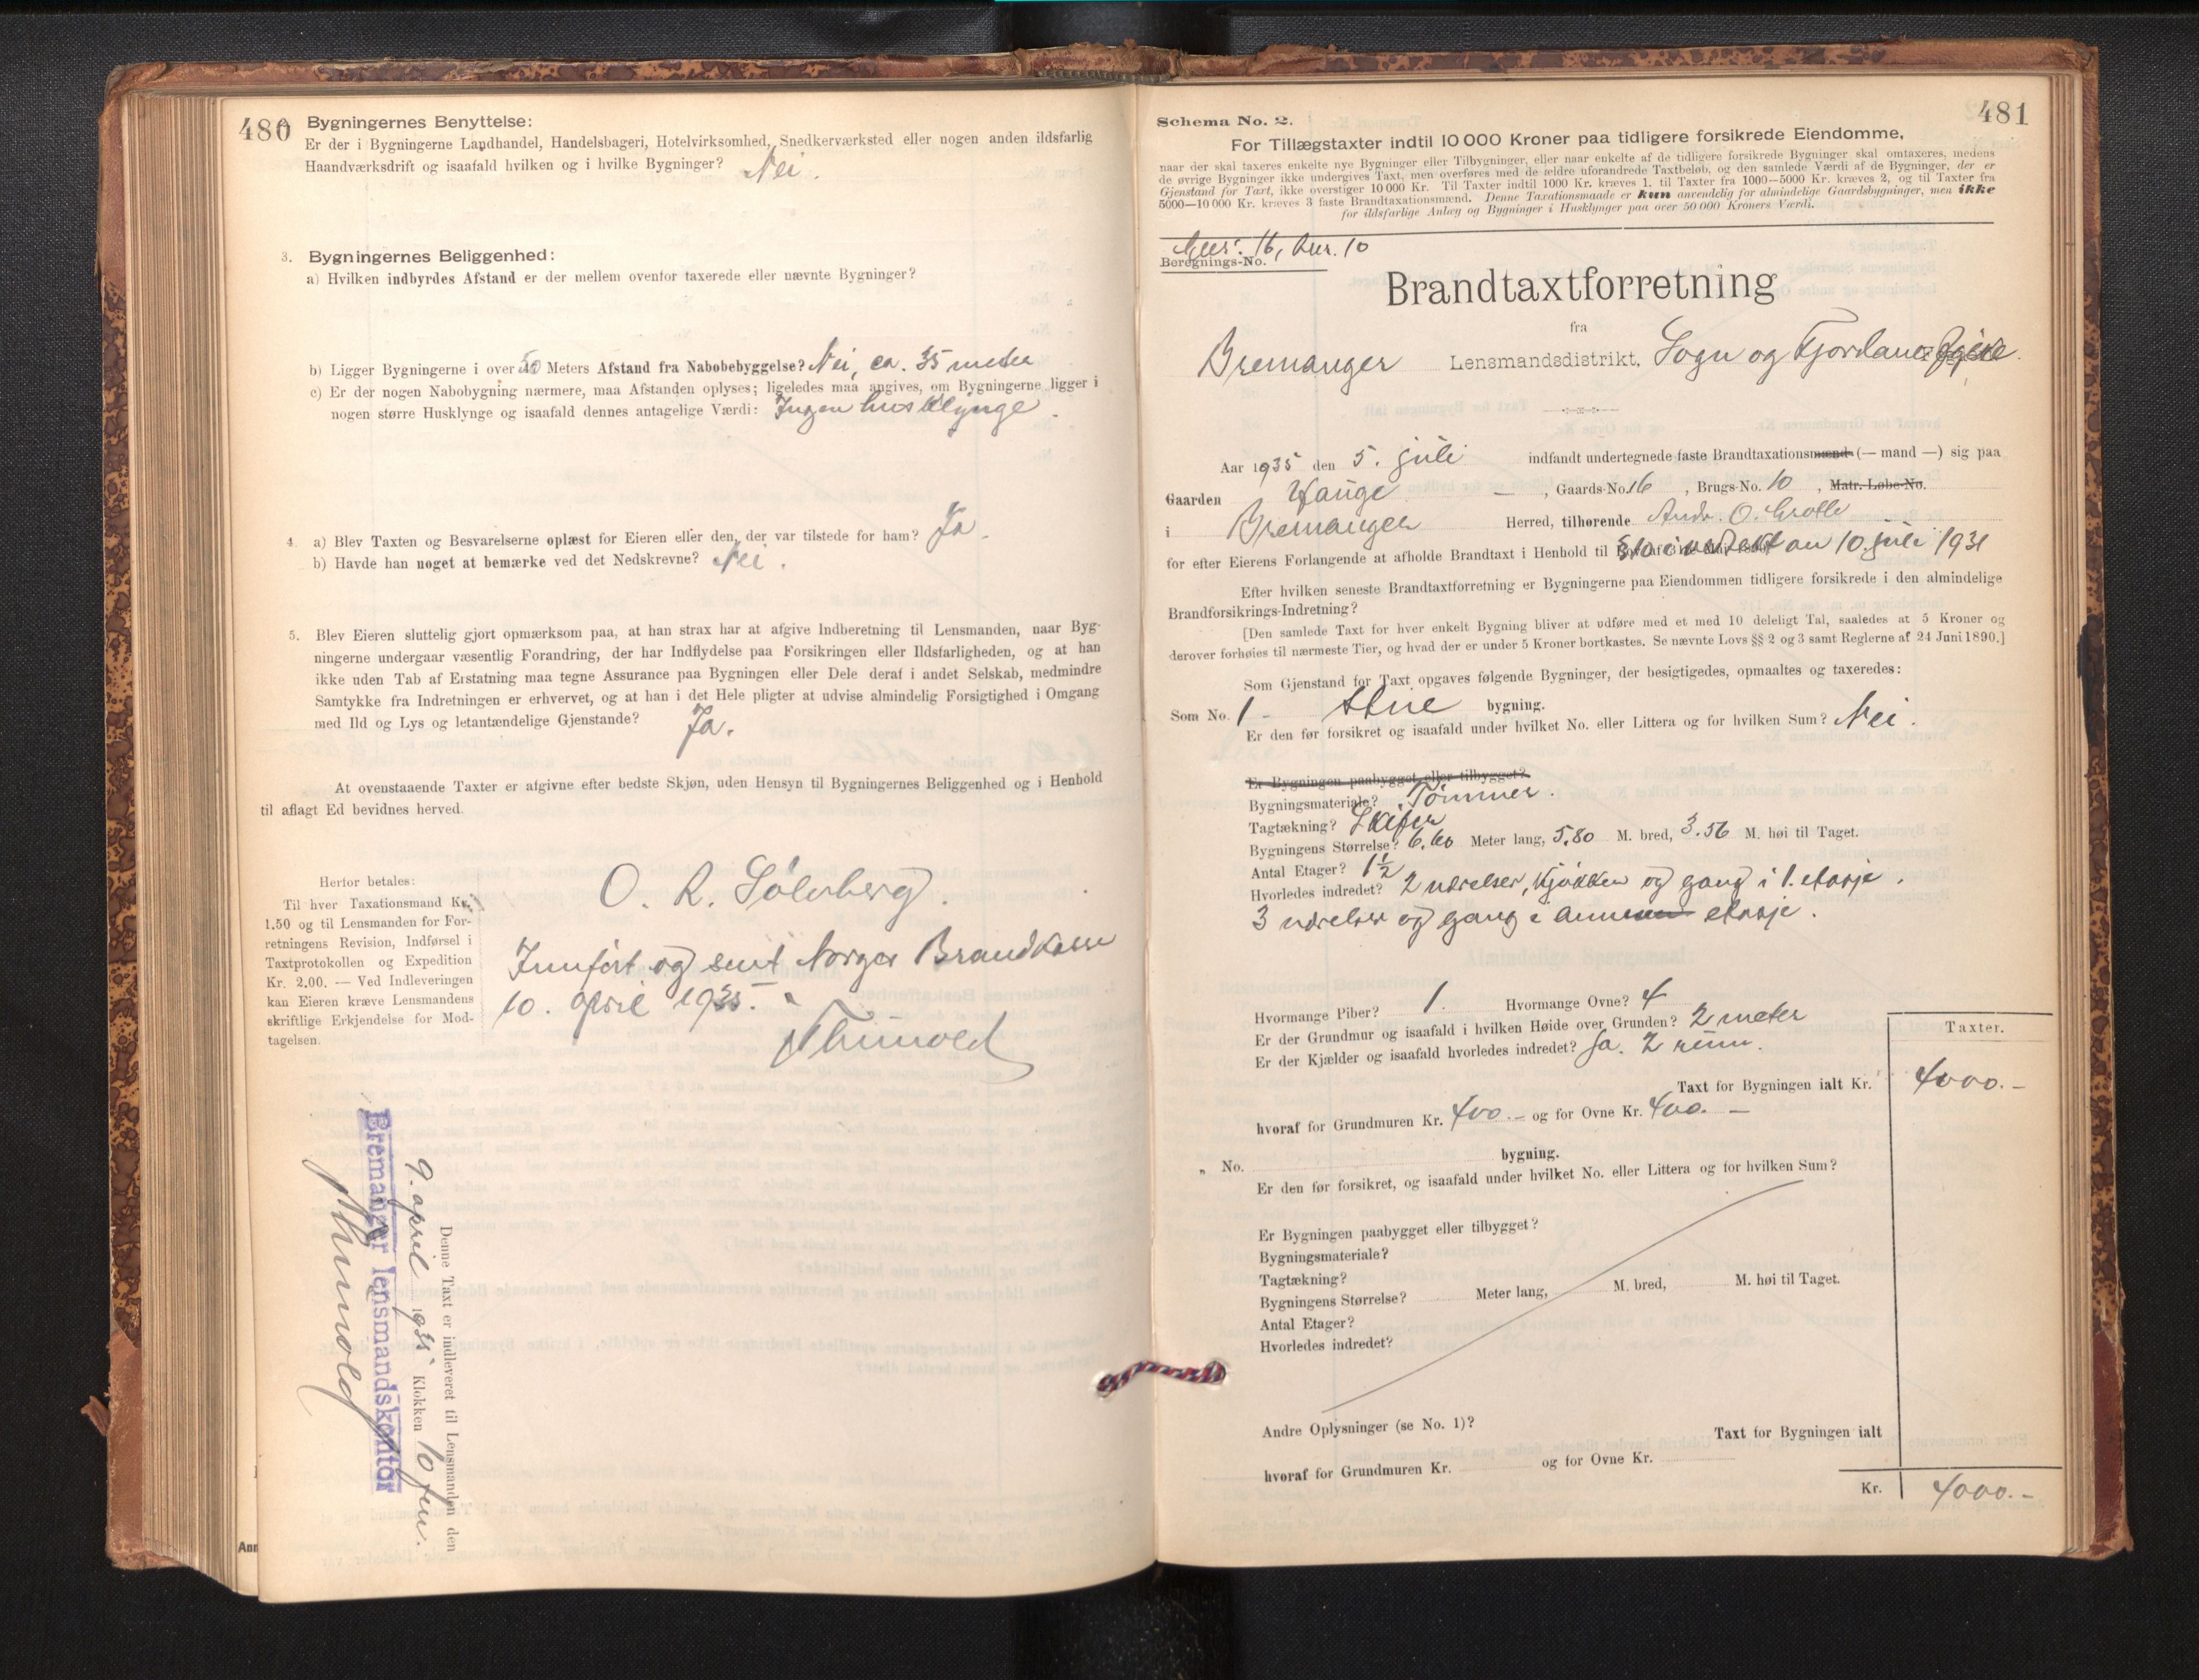 480
Bygningernes Benyttelse:
Er der i Bygningerne Landhandel, Handelsbageri, Hotelvirksomhed, Snedkerværksted eller nogen anden ildsfarlig
Haandværksdrift og isaafald hvilken og i hvilke Bygninger? Nei.
3. Bygningernes Beliggenhed:
a) Hvilken indbyrdes Afstand er der mellem ovenfor taxerede eller nævnte Bygninger?
b) Ligger Bygningerne i over 50 Meters Afstand fra Nabobebyggelse? Nei, ca. 35 meter
c) Er der nogen Nabobygning nærmere, maa Afstanden oplyses; ligeledes maa angives, om Bygningerne ligger i
nogen større Husklynge og isaafald dennes antagelige Værdi: Ingen husklynge.
4. a) Blev Taxten og Besvarelserne oplæst for Eieren eller den, der var tilstede for ham? Ja.
b) Havde han noget at bemærke ved det Nedskrevne? Nei.
5. Blev Eieren sluttelig gjort opmærksom paa, at han strax har at afgive Indberetning til Lensmanden, naar Byg-
ningerne undergaar væsentlig Forandring, der har Indflydelse paa Forsikringen eller Ildsfarligheden, og at han
ikke uden Tab af Erstatning maa tegne Assurance paa Bygningen eller Dele deraf i andet Selskab, medmindre
Samtykke fra Indretningen er erhvervet, og at han i det Hele pligter at udvise almindelig Forsigtighed i Omgang
med Ild og Lys og letantændelige Gjenstande? Ja.
At ovenstaaende Taxter er afgivne efter bedste Skjøn, uden Hensyn til Bygningernes Beliggenhed og i Henhold
til aflagt Ed bevidnes herved.
O. R. Sølvberg.
Herfor betales:
Til hver Taxationsmand Kr.
1.50 og til Lensmanden for For-
retningens Revision, Indførsel i
Taxtprotokollen og Expedition
Kr. 2.00. — Ved Indleveringen
kan Eieren kræve Lensmandens
skriftlige Erkjendelse for Mod-
tagelsen.
Innført og sent Norges Brandkasse
10. april 1935.
Denne Taxt er indleveret til Lensmanden den
9. april 1935 Klokken 10 fm.
Bremanger lensmandskontor
481
Schema No. 2.
For Tillægstaxter indtil 10 000 Kroner paa tidligere forsikrede Eiendomme,
naar der skal taxeres enkelte nye Bygninger eller Tilbygninger, eller naar enkelte af de tidligere forsikrede Bygninger skal omtaxeres, medens
de øvrige Bygninger ikke undergives Taxt, men overføres med de ældre uforandrede Taxtbeløb, og den samlede Værdi af de Bygninger, der er
Gjenstand for Taxt, ikke overstiger 10 000 Kr. Til Taxter indtil 1000 Kr. kræves 1, til Taxter fra 1000—5000 Kr. kræves 2, og til Taxter fra
5000—10 000 Kr. kræves 3 faste Brandtaxationsmænd. Denne Taxationsmaade er kun anvendelig for almindelige Gaardsbygninger, men ikke
for ildsfarlige Anlæg og Bygninger i Husklynger paa over 50 000 Kroners Værdi.
16, 10
Beregnings-No.
Brandtaxtforretning
fra
Bremanger Lensmandsdistrikt, Sogn og Fjordane fylke.
Aar 1935 den 5. juli indfandt undertegnede faste Brandtaxationsmænd (— mand —) sig paa
Gaarden Hauge — , Gaards-No. 16 , Brugs-No. 10 , Matr.-Løbe-No.
i Bremanger Herred, tilhørende Andr. O. Grotle
for efter Eierens Forlangende at afholde Brandtaxt i Henhold til av 10. juli 1931
Efter hvilken seneste Brandtaxtforretning er Bygningerne paa Eiendommen tidligere forsikrede i den almindelige
Brandforsikrings-Indretning?
[Den samlede Taxt for hver enkelt Bygning bliver at udføre med et med 10 deleligt Tal, saaledes at 5 Kroner og
derover forhøies til nærmeste Tier, og hvad der er under 5 Kroner bortkastes. Se nævnte Lovs §§ 2 og 3 samt Reglerne af 24 Juni 1890.]
Som Gjenstand for Taxt opgaves følgende Bygninger, der besigtigedes, opmaaltes og taxeredes:
Som No. 1 - Stue bygning.
Er den før forsikret og isaafald under hvilket No. eller Littera og for hvilken Sum? Nei.
Er Bygningen paabygget eller tilbygget?
Bygningsmateriale? Tømmer.
Tagtækning? Skifer
Bygningens Størrelse? 6.60 Meter lang, 5.80 M. bred, 3.56 M. høi til Taget.
Antal Etager? 1½
Hvorledes indredet? 2 værelser, kjøkken og gang i 1. etasje.
3 værelser og gang i annen etasje.
Hvormange Piber? 1. Hvormange Ovne? 4
Er der Grundmur og isaafald i hvilken Høide over Grunden? 2 meter
Er der Kjælder og isaafald hvorledes indredet? Ja. 2 rum.
Taxter.
Taxt for Bygningen ialt Kr. 4000.-
hvoraf for Grundmuren Kr. 400.- og for Ovne Kr. 400.-
„ No. bygning.
Er den før forsikret, og isaafald under hvilket No. eller Littera og for hvilken Sum?
Er Bygningen paabygget eller tilbygget?
Bygningsmateriale?
Tagtækning?
Bygningens Størrelse? Meter lang, M. bred, M. høi til Taget.
Antal Etager?
Hvorledes indredet?
Andre Oplysninger (se No. 1)?
Taxt for Bygningen ialt
hvoraf for Grundmuren Kr. og for Ovne Kr.
Kr. 4000.-